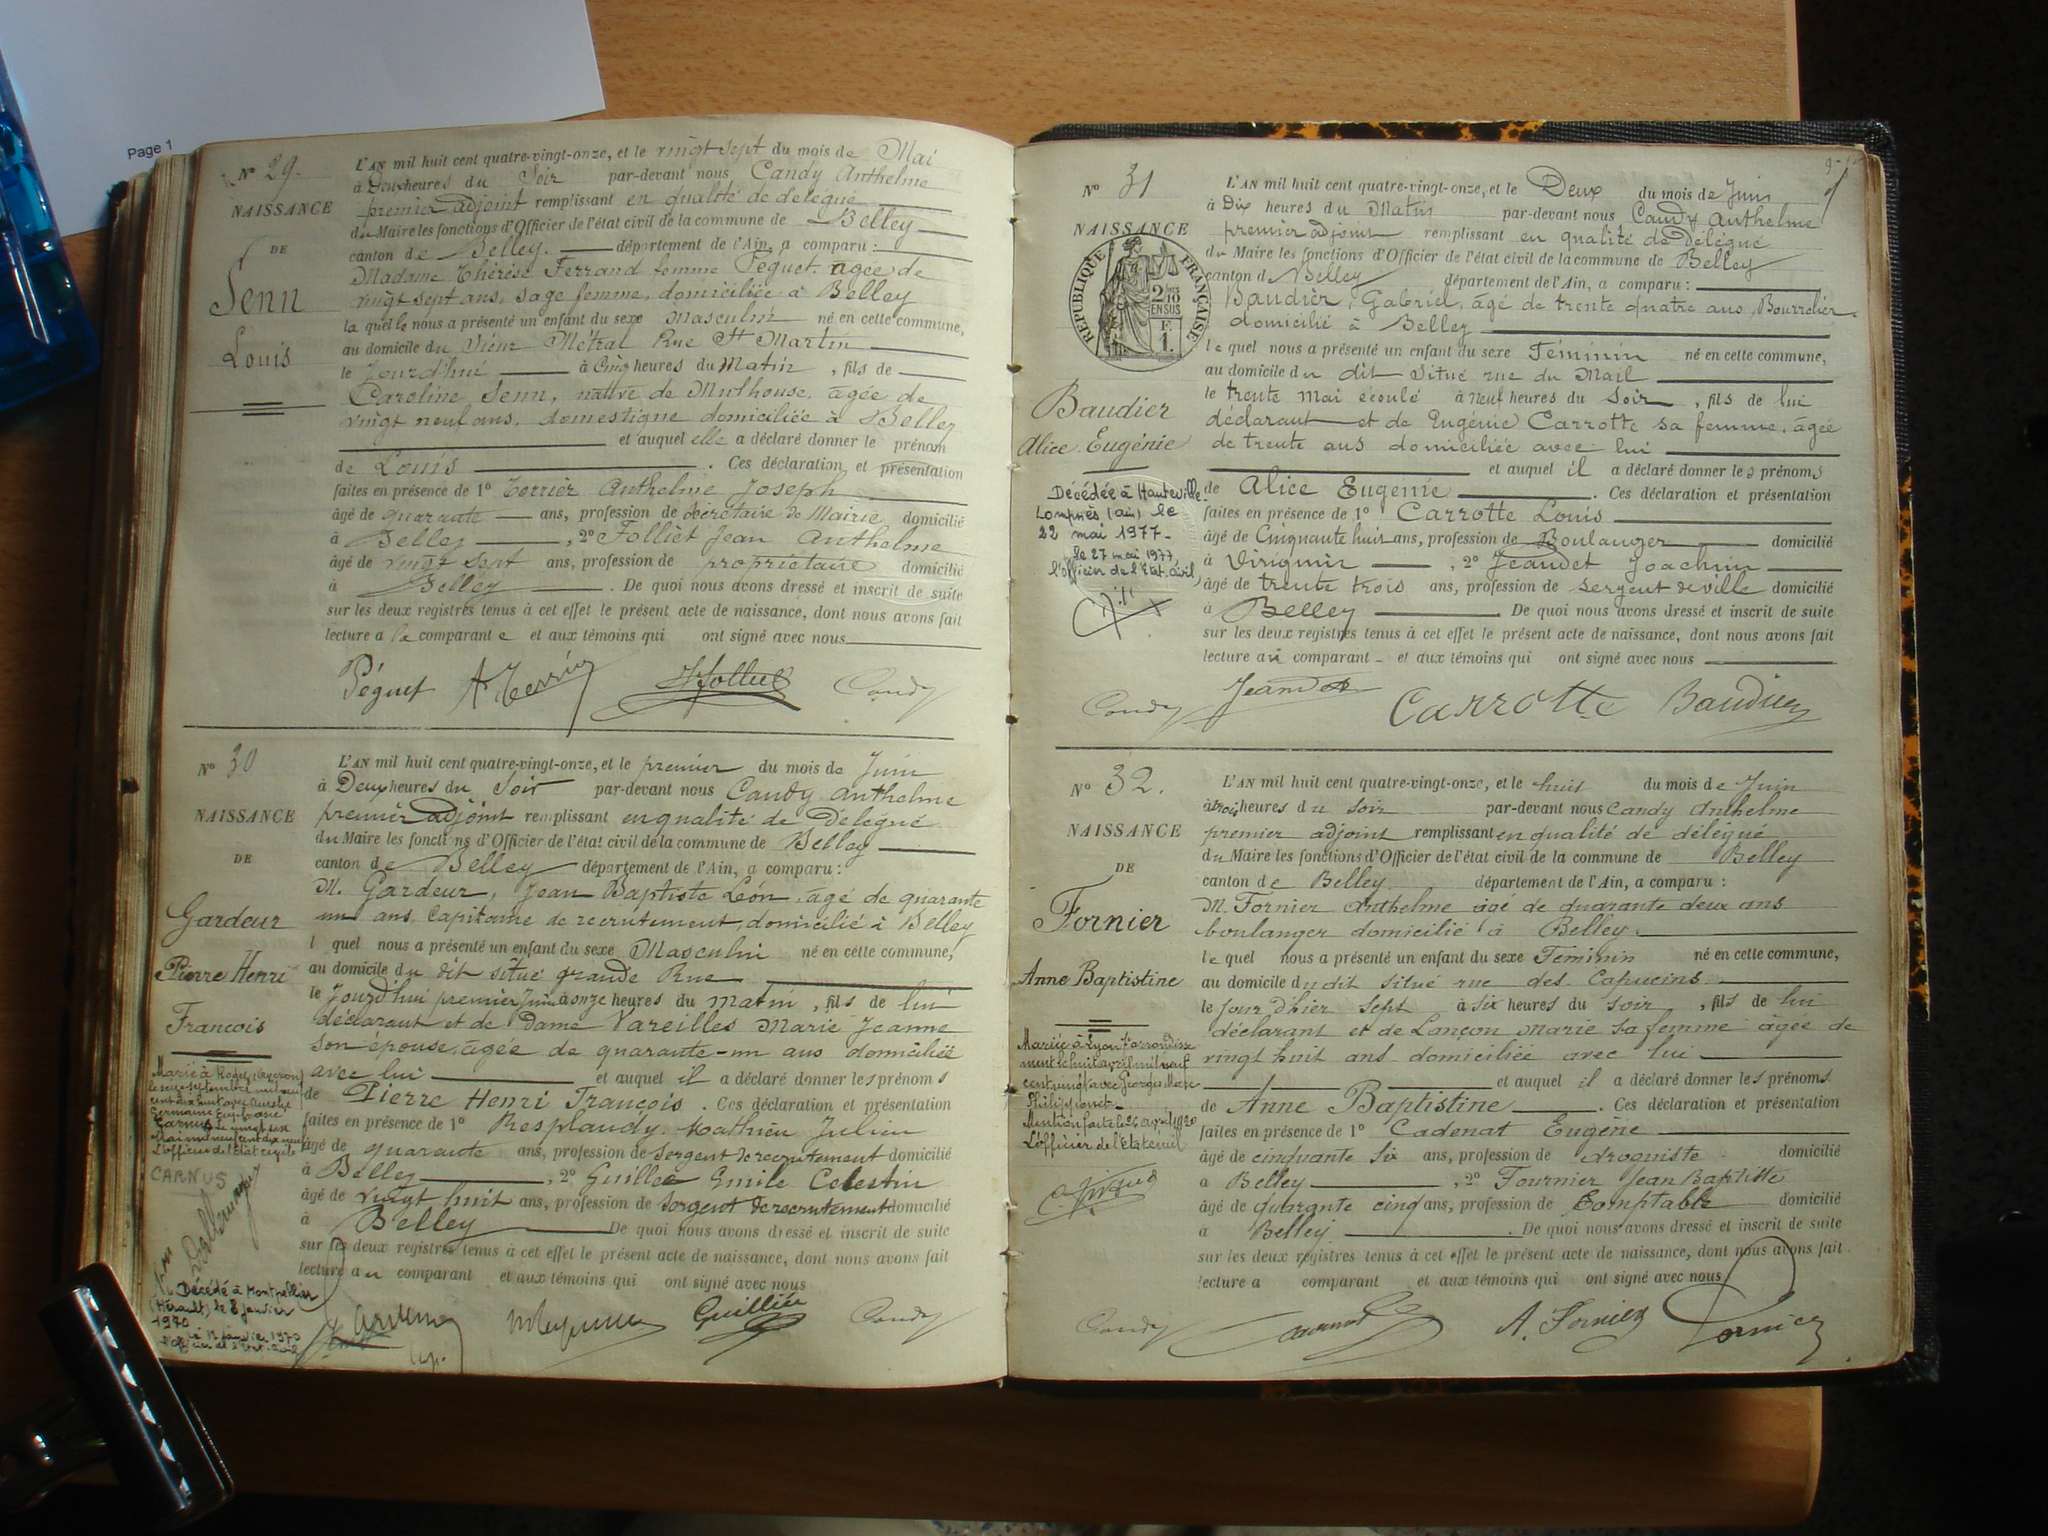 Page 1
N° 29.
NAISSANCE
DE
Senn
Louis
L'AN mil huit cent quatre-vingt-onze, et le vingt sept du mois de Mai
à Deux heures du Soir par-devant nous Candy Anthelme
premier adjoint remplissant en qualité de délégué
du Maire les fonctions d'Officier de l'état civil de la commune de Belley
canton de Belley. département de l'Ain, a comparu :
Madame Thérèse Ferrand femme Péguet, agée de
vingt sept ans, sage femme, domiciliée à Belley
la quelle nous a présenté un enfant du sexe Masculin né en cette commune,
au domicile du Sieur Métral Rue St Martin
le Jourd'hui à Cinq heures du Matin, fils de
Caroline Senn, native de Mulhouse, âgée de
vingt neuf ans, domestique domiciliée à Belley
et auquel elle a déclaré donner le prénom
de Louis. Ces déclaration et présentation
faites en présence de 1° Terrier Anthelme Joseph
âgé de quarante ans, profession de Secrétaire de Mairie domicilié
à Belley, 2° Folliet Jean Anthelme
âgé de vingt sept ans, profession de propriétaire domicilié
à Belley. De quoi nous avons dressé et inscrit de suite
sur les deux registres tenus à cet effet le présent acte de naissance, dont nous avons fait
lecture a la comparante et aux témoins qui ont signé avec nous
Péguet A Terrier Folliet Candy
N° 30
NAISSANCE
DE
Gardeur
Pierre Henri
François
Marié à Rodez (Aveyron)
CARNUS
Décédé à Montpellier
(Hérault) le 8 Janvier
1970
L'AN mil huit cent quatre-vingt-onze, et le premier du mois de Juin
à Deux heures du Soir par-devant nous Candy Anthelme
premier adjoint remplissant en qualité de Délégué
du Maire les fonctions d'Officier de l'état civil de la commune de Belley
canton de Belley département de l'Ain, a comparu :
M. Gardeur, Jean Baptiste Léon, âgé de quarante
un ans, Capitaine de recrutement, domicilié à Belley
l quel nous a présenté un enfant du sexe Masculin né en cette commune,
au domicile du dit situé grande Rue
le Jourd'hui premier Juin à onze heures du matin, fils de lui
déclarant et de Dame Vareilles Marie Jeanne
son épouse, âgée de quarante-un ans domiciliée
avec lui et auquel il a déclaré donner les prénoms
de Pierre Henri François. Ces déclaration et présentation
faites en présence de 1° Resplandy Mathieu Julien
âgé de quarante ans, profession de Sergent de recrutement domicilié
à Belley, 2° Guillee Emile Celestin
âgé de vingt huit ans, profession de Sergent de recrutement domicilié
à Belley De quoi nous avons dressé et inscrit de suite
sur les deux registres tenus à cet effet le présent acte de naissance, dont nous avons fait
lecture au comparant et aux témoins qui ont signé avec nous
Candy
N° 31
NAISSANCE
RÉPUBLIQUE FRANÇAISE
2/10
EN SUS
1.
Baudier
Alice Eugénie
Décédée à Hauteville-
Lompnès (Ain) le
22 mai 1977-
le 27 mai 1977
l'officier de l'Etat Civil,
L'AN mil huit cent quatre-vingt-onze, et le Deux du mois de Juin
à Dix heures du Matin par-devant nous Candy Anthelme
premier adjoint remplissant en qualité de Délégué
du Maire les fonctions d'Officier de l'état civil de la commune de Belley
canton de Belley département de l'Ain, a comparu :
Baudier, Gabriel, âgé de trente quatre ans, Bourrelier
domicilié à Belley
le quel nous a présenté un enfant du sexe Féminin né en cette commune,
au domicile du dit situé rue du Mail
le trente Mai écoulé à neuf heures du Soir, fils de lui
déclarant et de Eugénie Carrotte sa femme, âgée
de trente ans domiciliée avec lui
et auquel il a déclaré donner les prénoms
de Alice Eugénie. Ces déclaration et présentation
faites en présence de 1° Carrotte Louis
âgé de Cinquante huit ans, profession de Boulanger domicilié
à Virignin, 2° Jeandet Joachim
âgé de trente trois ans, profession de Sergent de ville domicilié
à Belley De quoi nous avons dressé et inscrit de suite
sur les deux registres tenus à cet effet le présent acte de naissance, dont nous avons fait
lecture au comparant et aux témoins qui ont signé avec nous
Candy Jeandet Carrotte Baudier
N° 32.
NAISSANCE
DE
Fornier
Anne Baptistine
Mention faite le 24 avril 1920
L'officier de l'Etat Civil
L'AN mil huit cent quatre-vingt-onze, et le huit du mois de Juin
à trois heures du soir par-devant nous Candy Anthelme
premier adjoint remplissant en qualité de délégué
du Maire les fonctions d'Officier de l'état civil de la commune de Belley
canton de Belley département de l'Ain, a comparu :
M. Fornier Anthelme âgé de quarante deux ans
boulanger domicilié à Belley.
le quel nous a présenté un enfant du sexe Féminin né en cette commune,
au domicile du dit situé rue des Capucins
le Jour d'hier sept à six heures du soir, fils de lui
déclarant et de Lançon Marie sa femme âgée de
vingt huit ans domiciliée avec lui
et auquel il a déclaré donner les prénoms
de Anne Baptistine. Ces déclaration et présentation
faites en présence de 1° Cadenat Eugène
âgé de cinquante six ans, profession de droguiste domicilié
à Belley, 2° Fournier Jean Baptiste
âgé de quarante cinq ans, profession de Comptable domicilié
à Belley. De quoi nous avons dressé et inscrit de suite
sur les deux registres tenus à cet effet le présent acte de naissance, dont nous avons fait
lecture a comparant et aux témoins qui ont signé avec nous
Candy A. Fornier Fornier